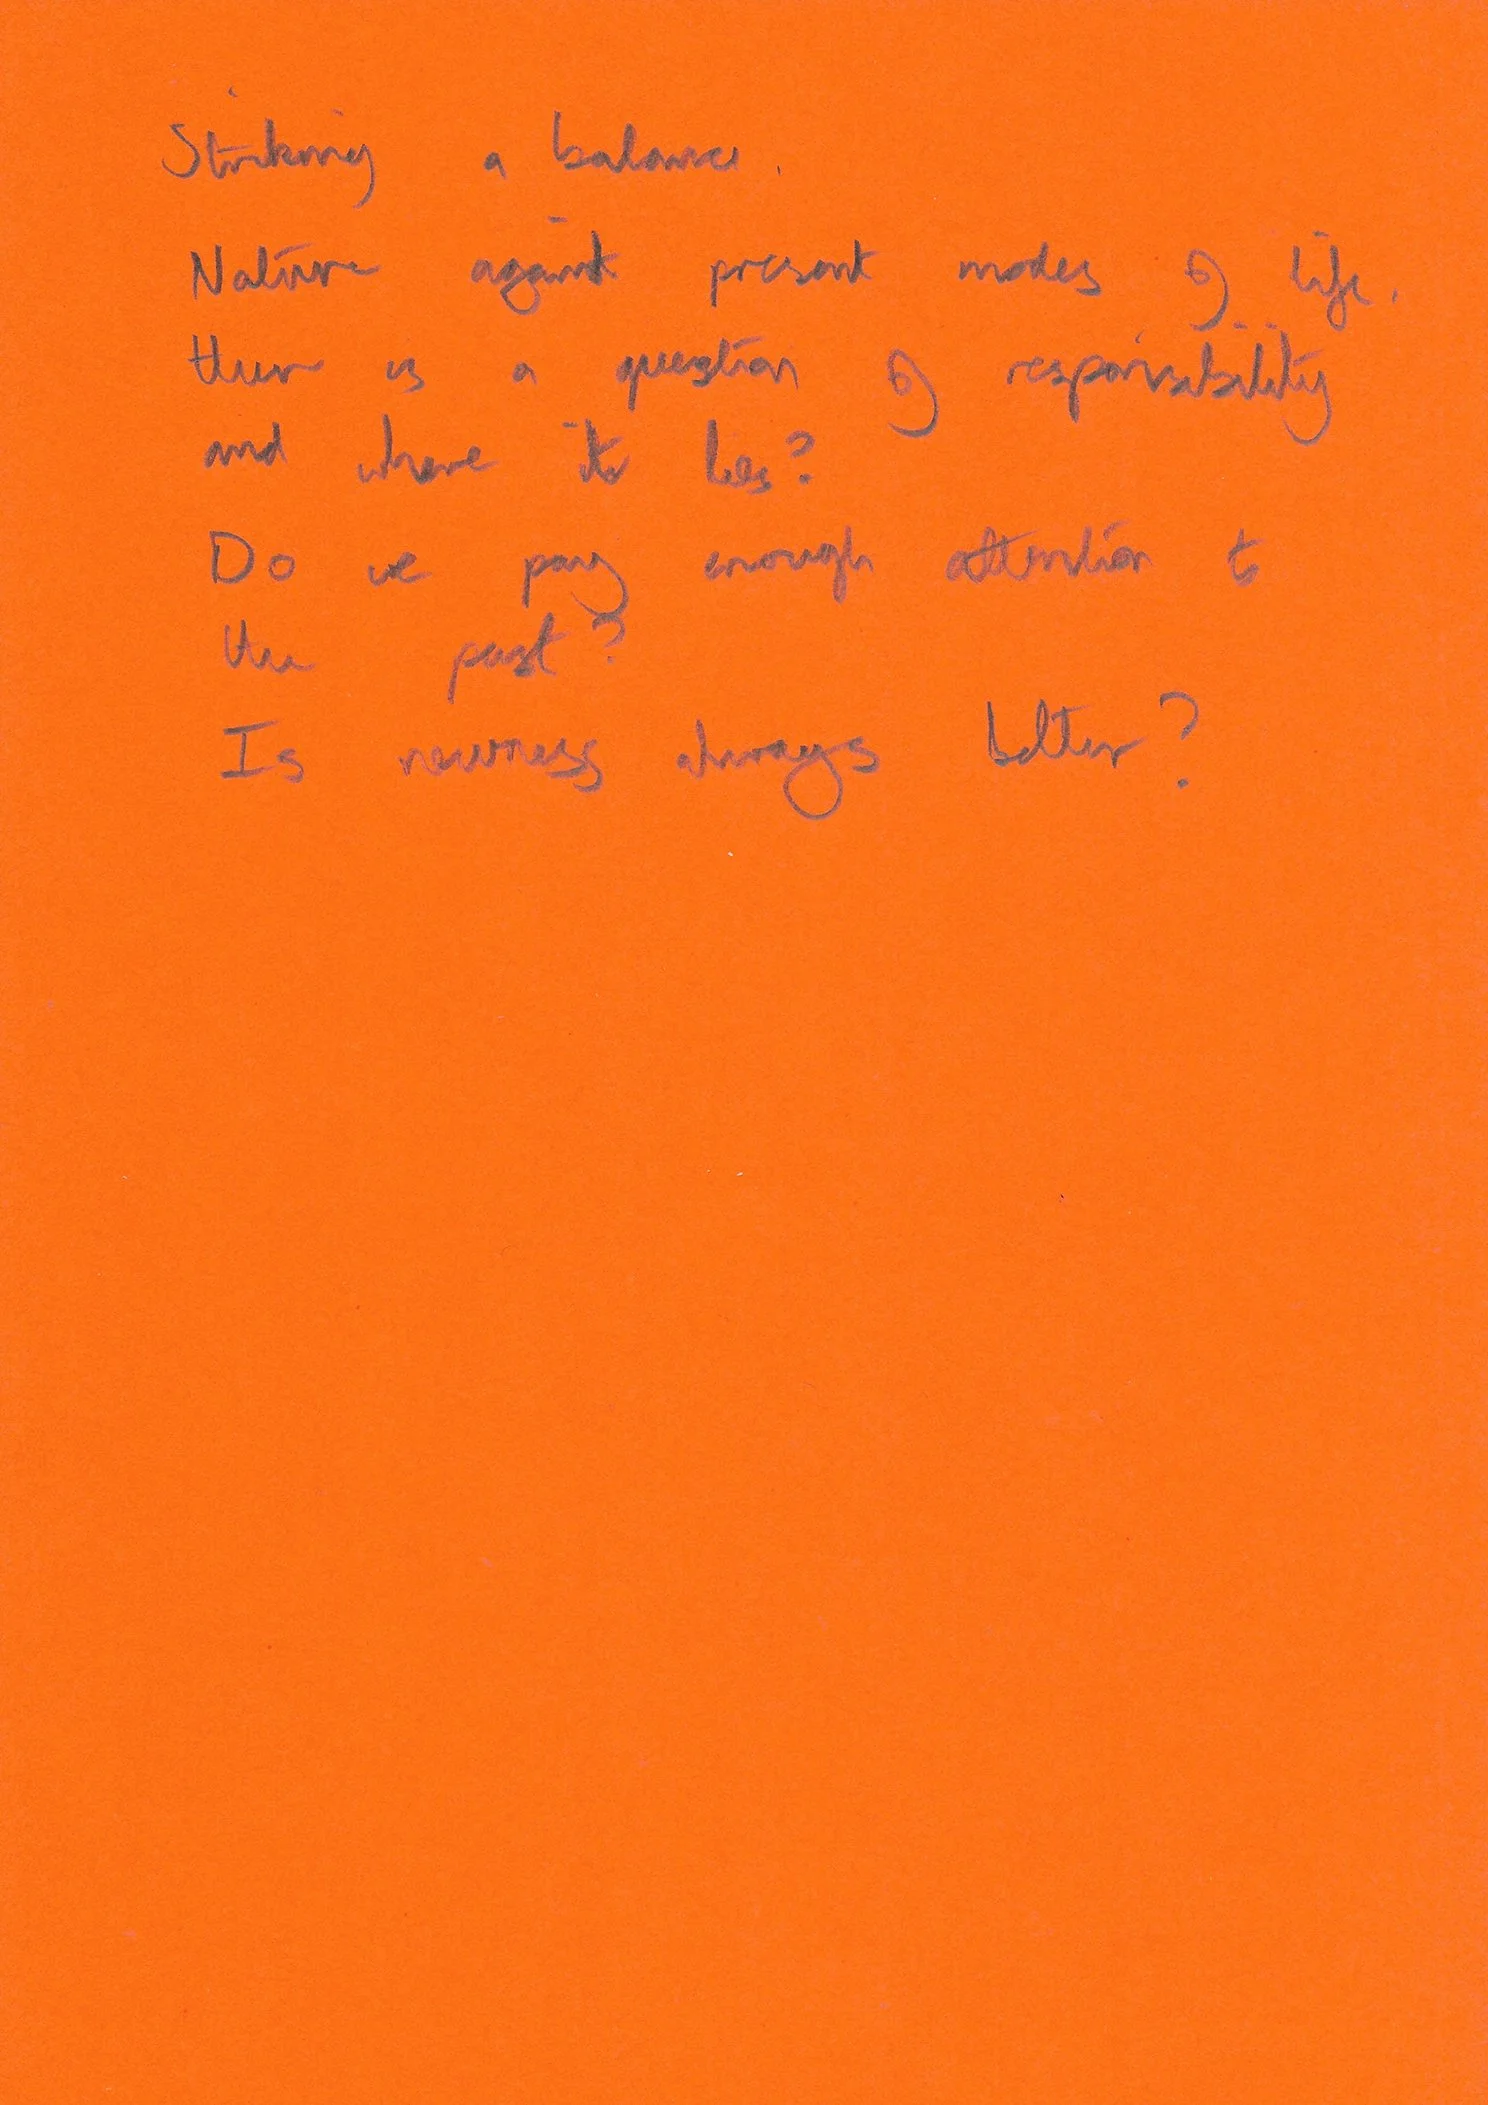 Striking a balance.
Nature against present modes of life.
there is a question of responsibility
and where it lies?
Do we pay enough attention to
the past?
Is newness always better?